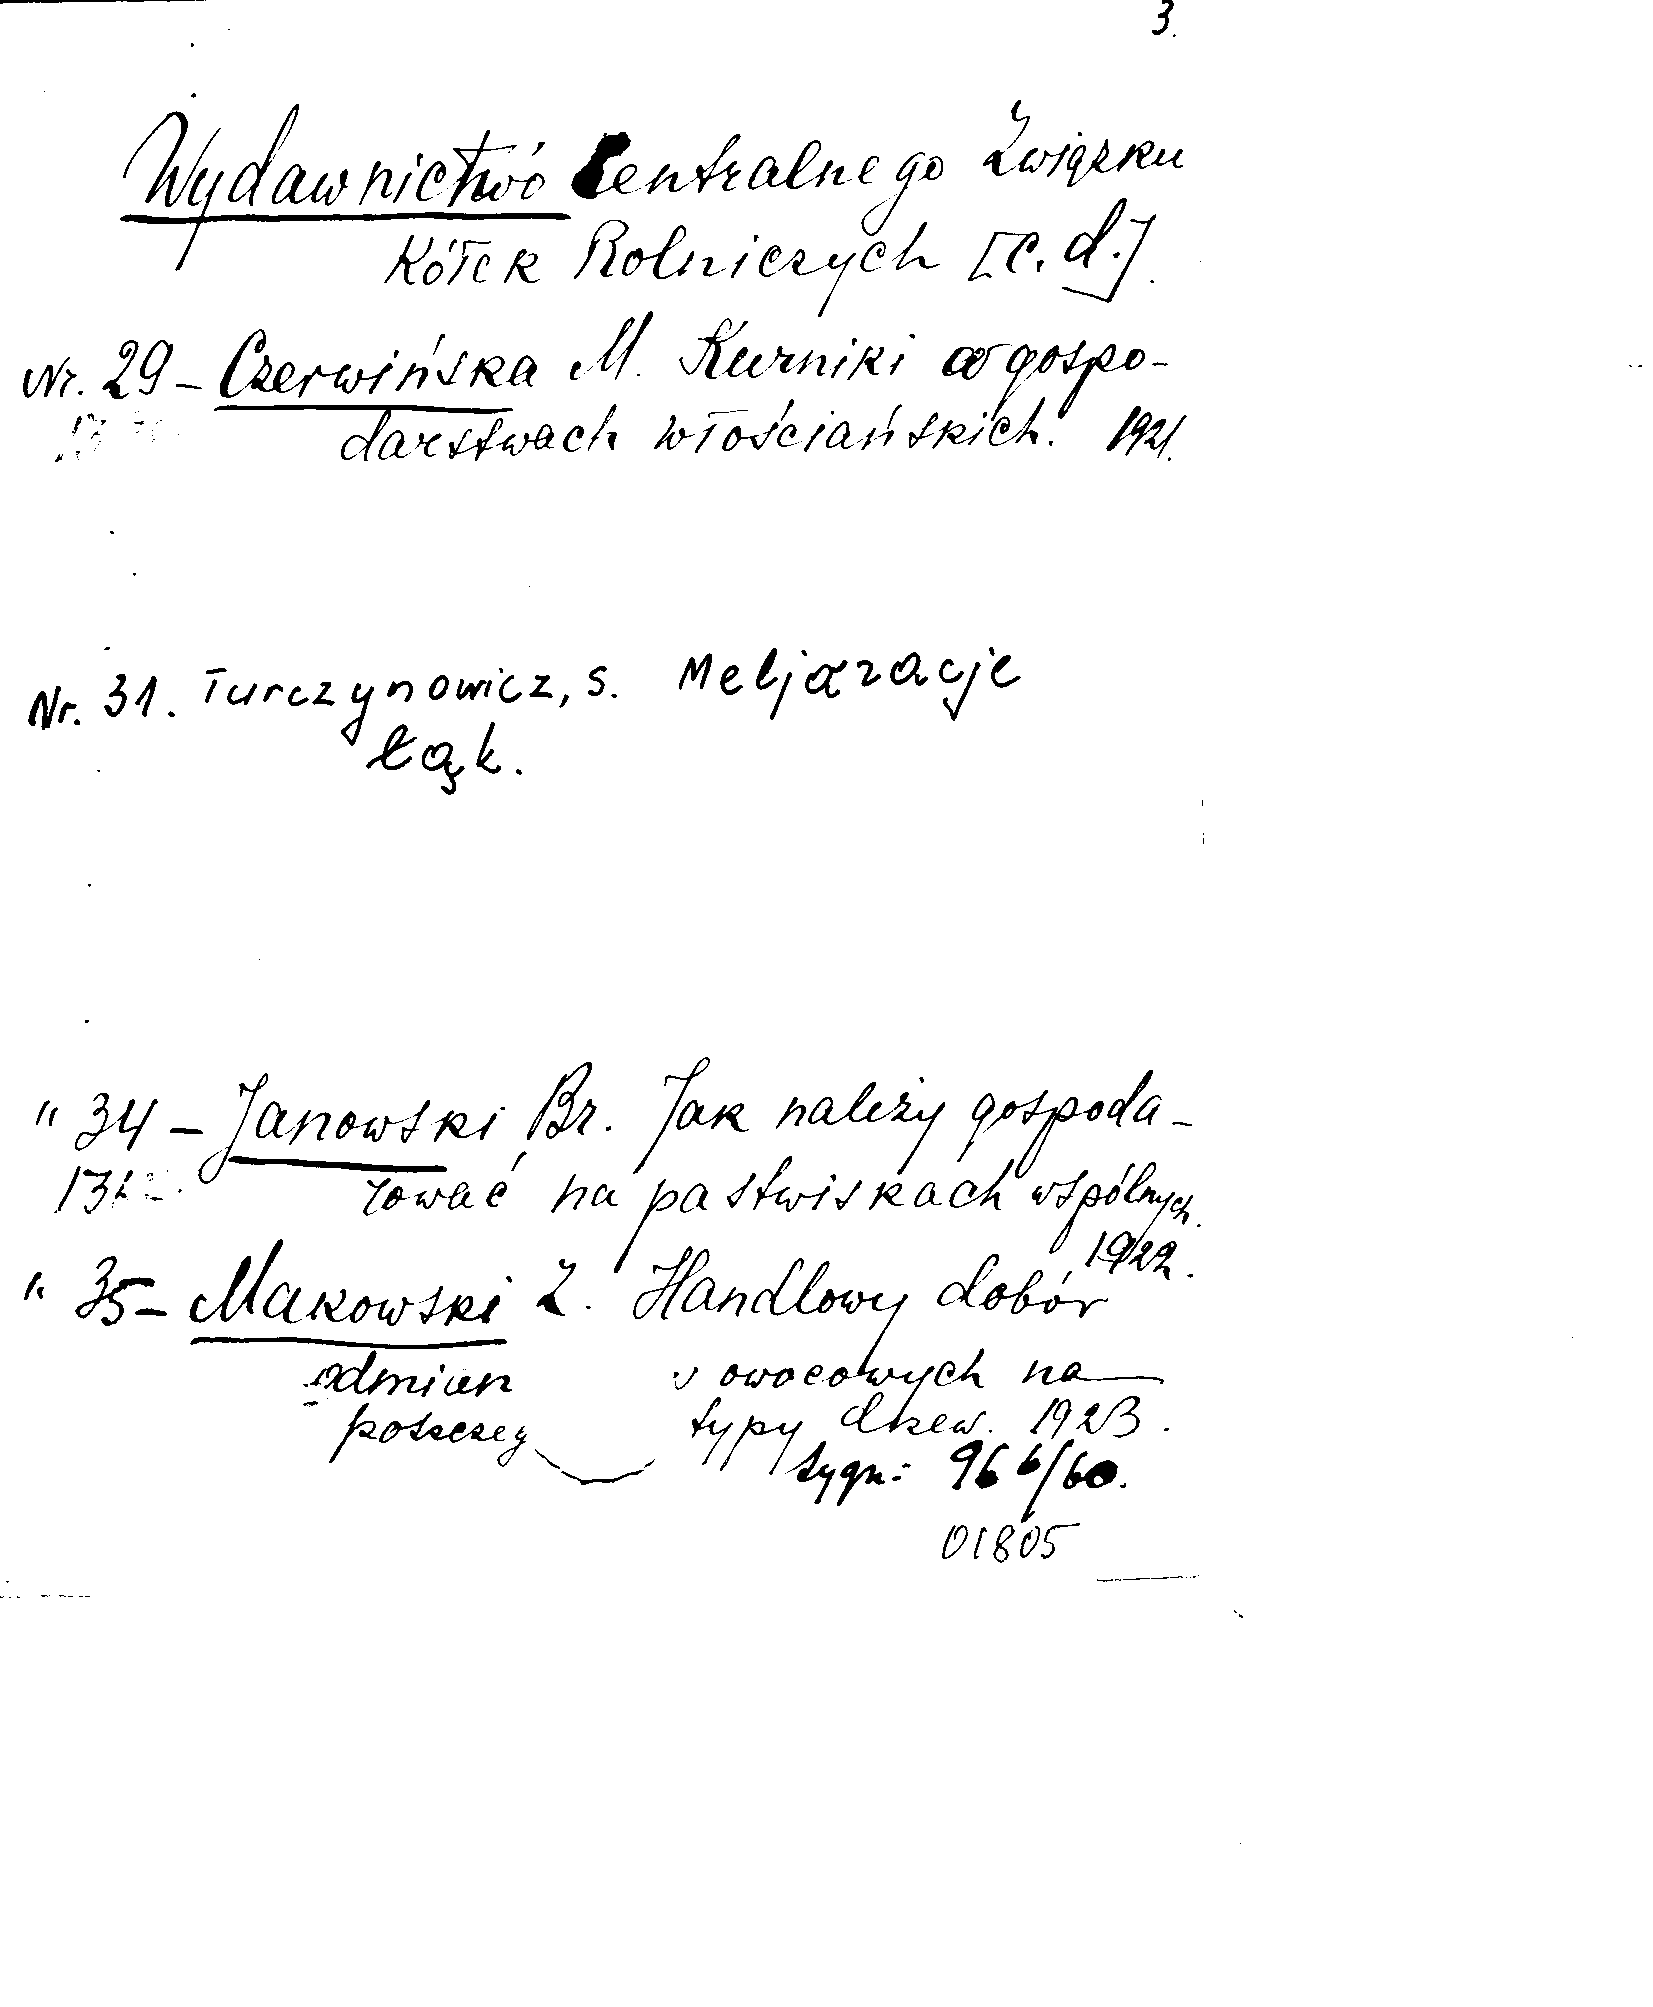 3.
Wydawnictwo Centralnego Związku
Kółek Rolniczych [c. d.].
Nr. 29 – Czerwińska M. Kurniki w gospo-
darstwach włościańskich. 1921.
Nr. 31. Turczynowicz, S. Meljoracje
łąk.
" 34 – Janowski Br. Jak należy gospoda-
rować na pastwiskach wspólnych.
1922.
" 35 – Makowski Z. Handlowy dobór
odmian owocowych na
typy drzew. 1923.
sygn: 966/60.
01805